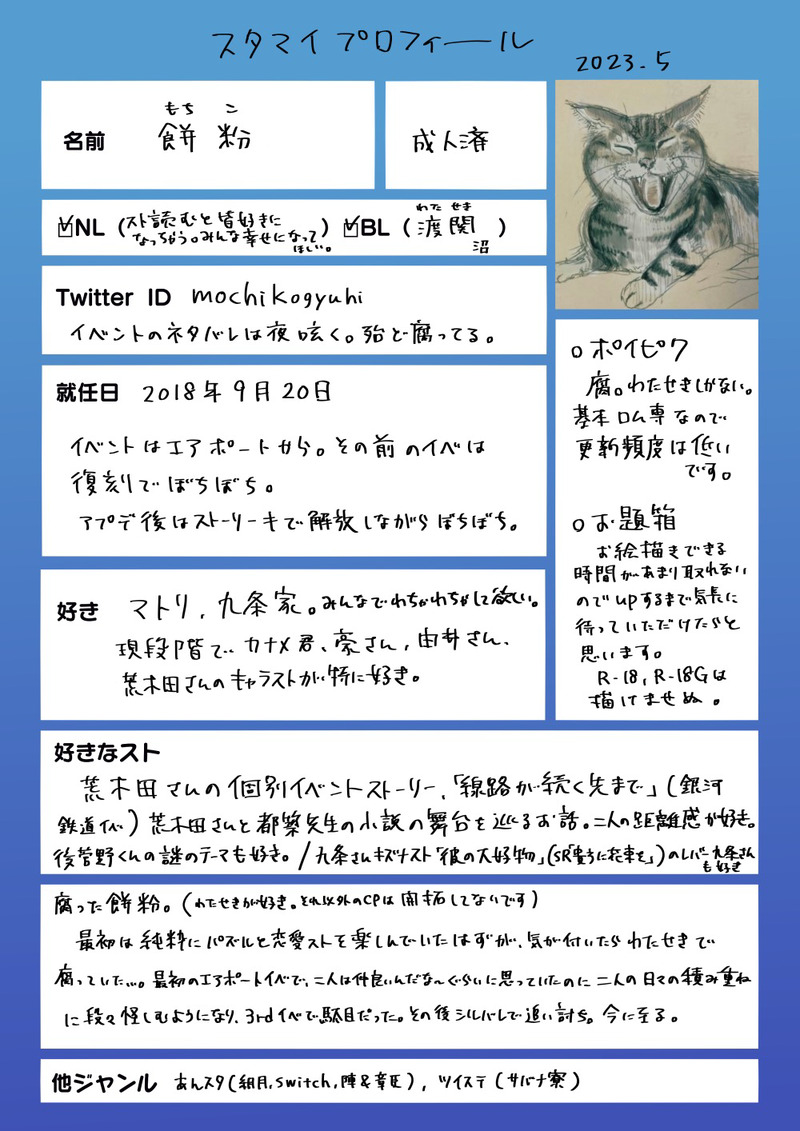 スタマイ プロフィール
2023.5
もち こ
名前 餅 粉
成人済
☑NL（スト読むと皆好きに
なっちゃう。みんな幸せになって
ほしい。）
わた せき
☑BL（渡 関
沼）
Twitter ID mochikogyuhi
イベントのネタバレは夜呟く。殆ど腐ってる。
就任日 2018年9月20日
イベントはエアポートから。その前のイベは
復刻でぼちぼち。
アプデ後はストーリーキで解放しながらぼちぼち。
好き マトリ、九条家。みんなでわちゃわちゃして欲しい。
現段階で、カナメ君、豪さん、由井さん、
荒木田さんのキャラストが特に好き。
○ポイピク
腐。わたせきしかない。
基本ロム専なので
更新頻度は低い
です。
○お題箱
お絵描きできる
時間があまり取れない
のでupするまで気長に
待っていただけたらと
思います。
R-18、R-18Gは
描けませぬ。
好きなスト
荒木田さんの個別イベントストーリー、「線路が続く先まで」（銀河
鉄道イベ）荒木田さんと都築先生の小説の舞台を巡るお話。二人の距離感が好き。
後菅野くんの謎のテーマも好き。/九条さんキズナスト「彼の大好物」（SR「貴方に花束を」）のレバー九条さん
も好き
腐った餅粉。（わたせきが好き。それ以外のCPは開拓してないです）
最初は純粋にパズルと恋愛ストを楽しんでいたはずが、気が付いたらわたせきで
腐っていた…。最初のエアポートイベで、二人は仲良いんだな～ぐらいに思っていたのに二人の日々の積み重ね
に段々怪しむようになり、3rdイベで駄目だった。その後シルバレで追い討ち。今に至る。
他ジャンル あんスタ（紅月、switch、陣&章臣）、ツイステ（サバナ寮）